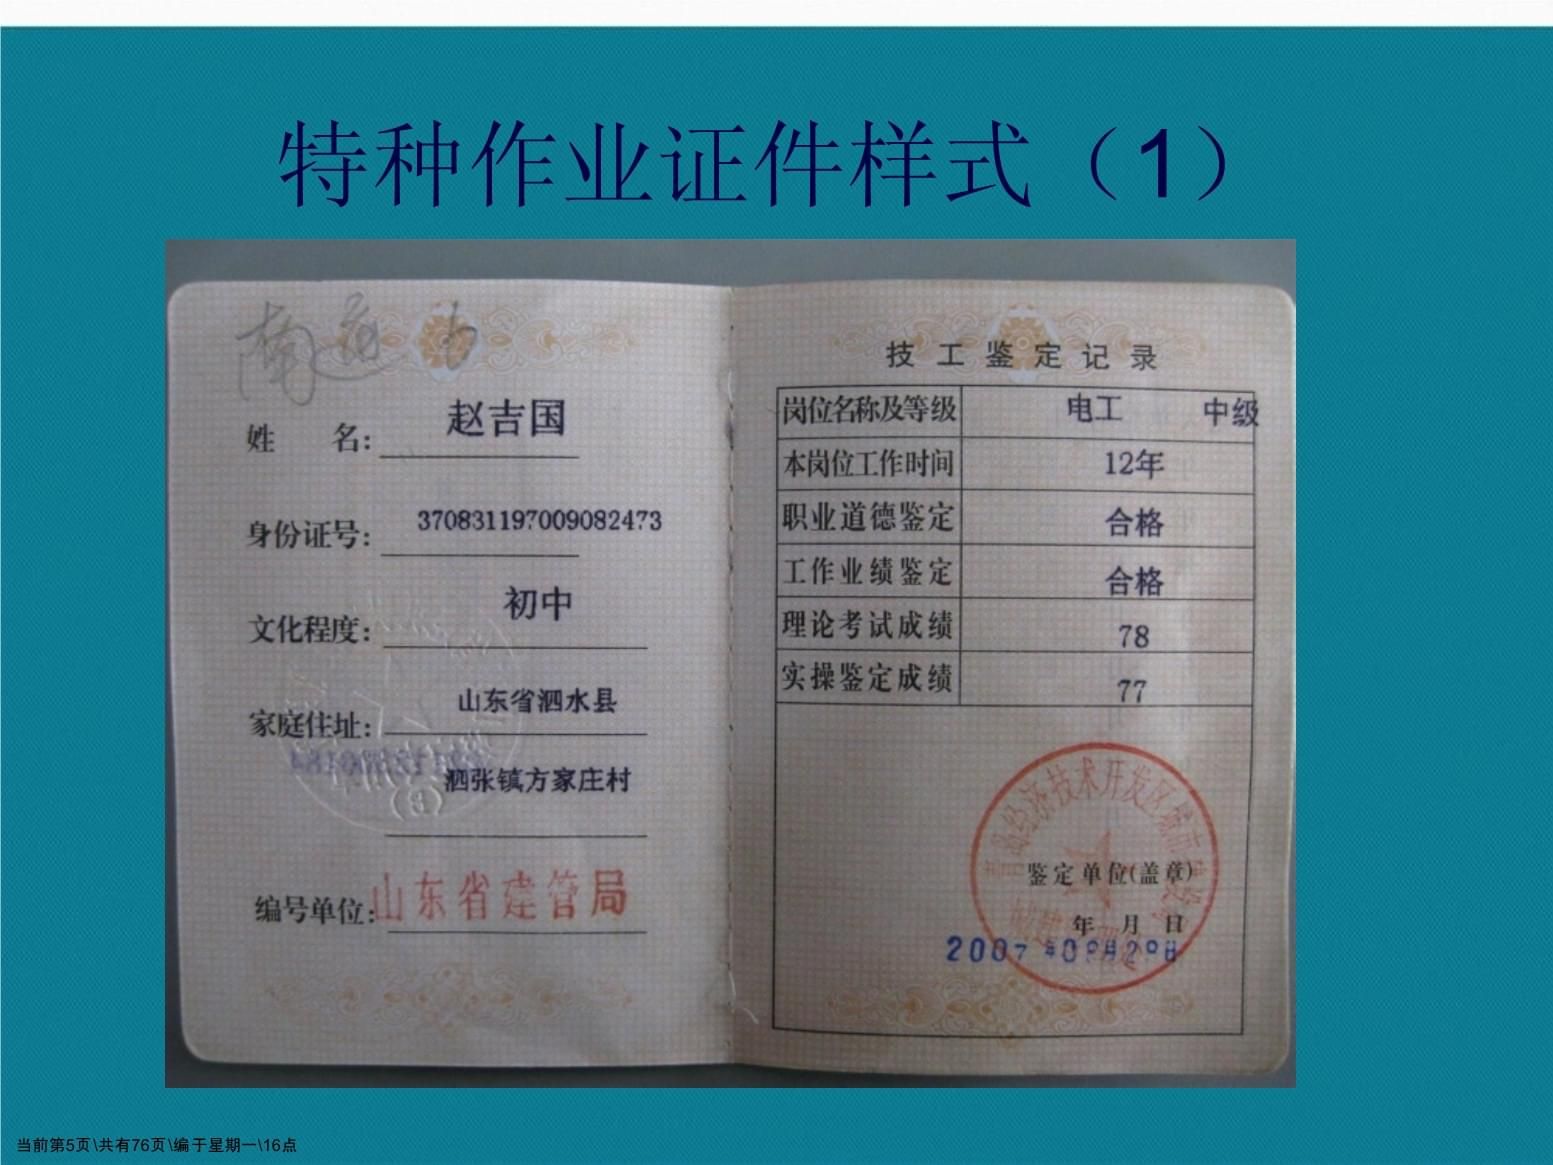 特种作业证件样式（1）
姓 名：赵吉国
身份证号：370831197009082473
文化程度：初中
家庭住址：山东省泗水县
泗张镇方家庄村
编号单位：山东省建管局
技工鉴定记录
岗位名称及等级 电工 中级
本岗位工作时间 12年
职业道德鉴定 合格
工作业绩鉴定 合格
理论考试成绩 78
实操鉴定成绩 77
青岛经济技术开发区城市建设
鉴定单位(盖章)
年 月 日
2007年
当前第5页\共有76页\编于星期一\16点